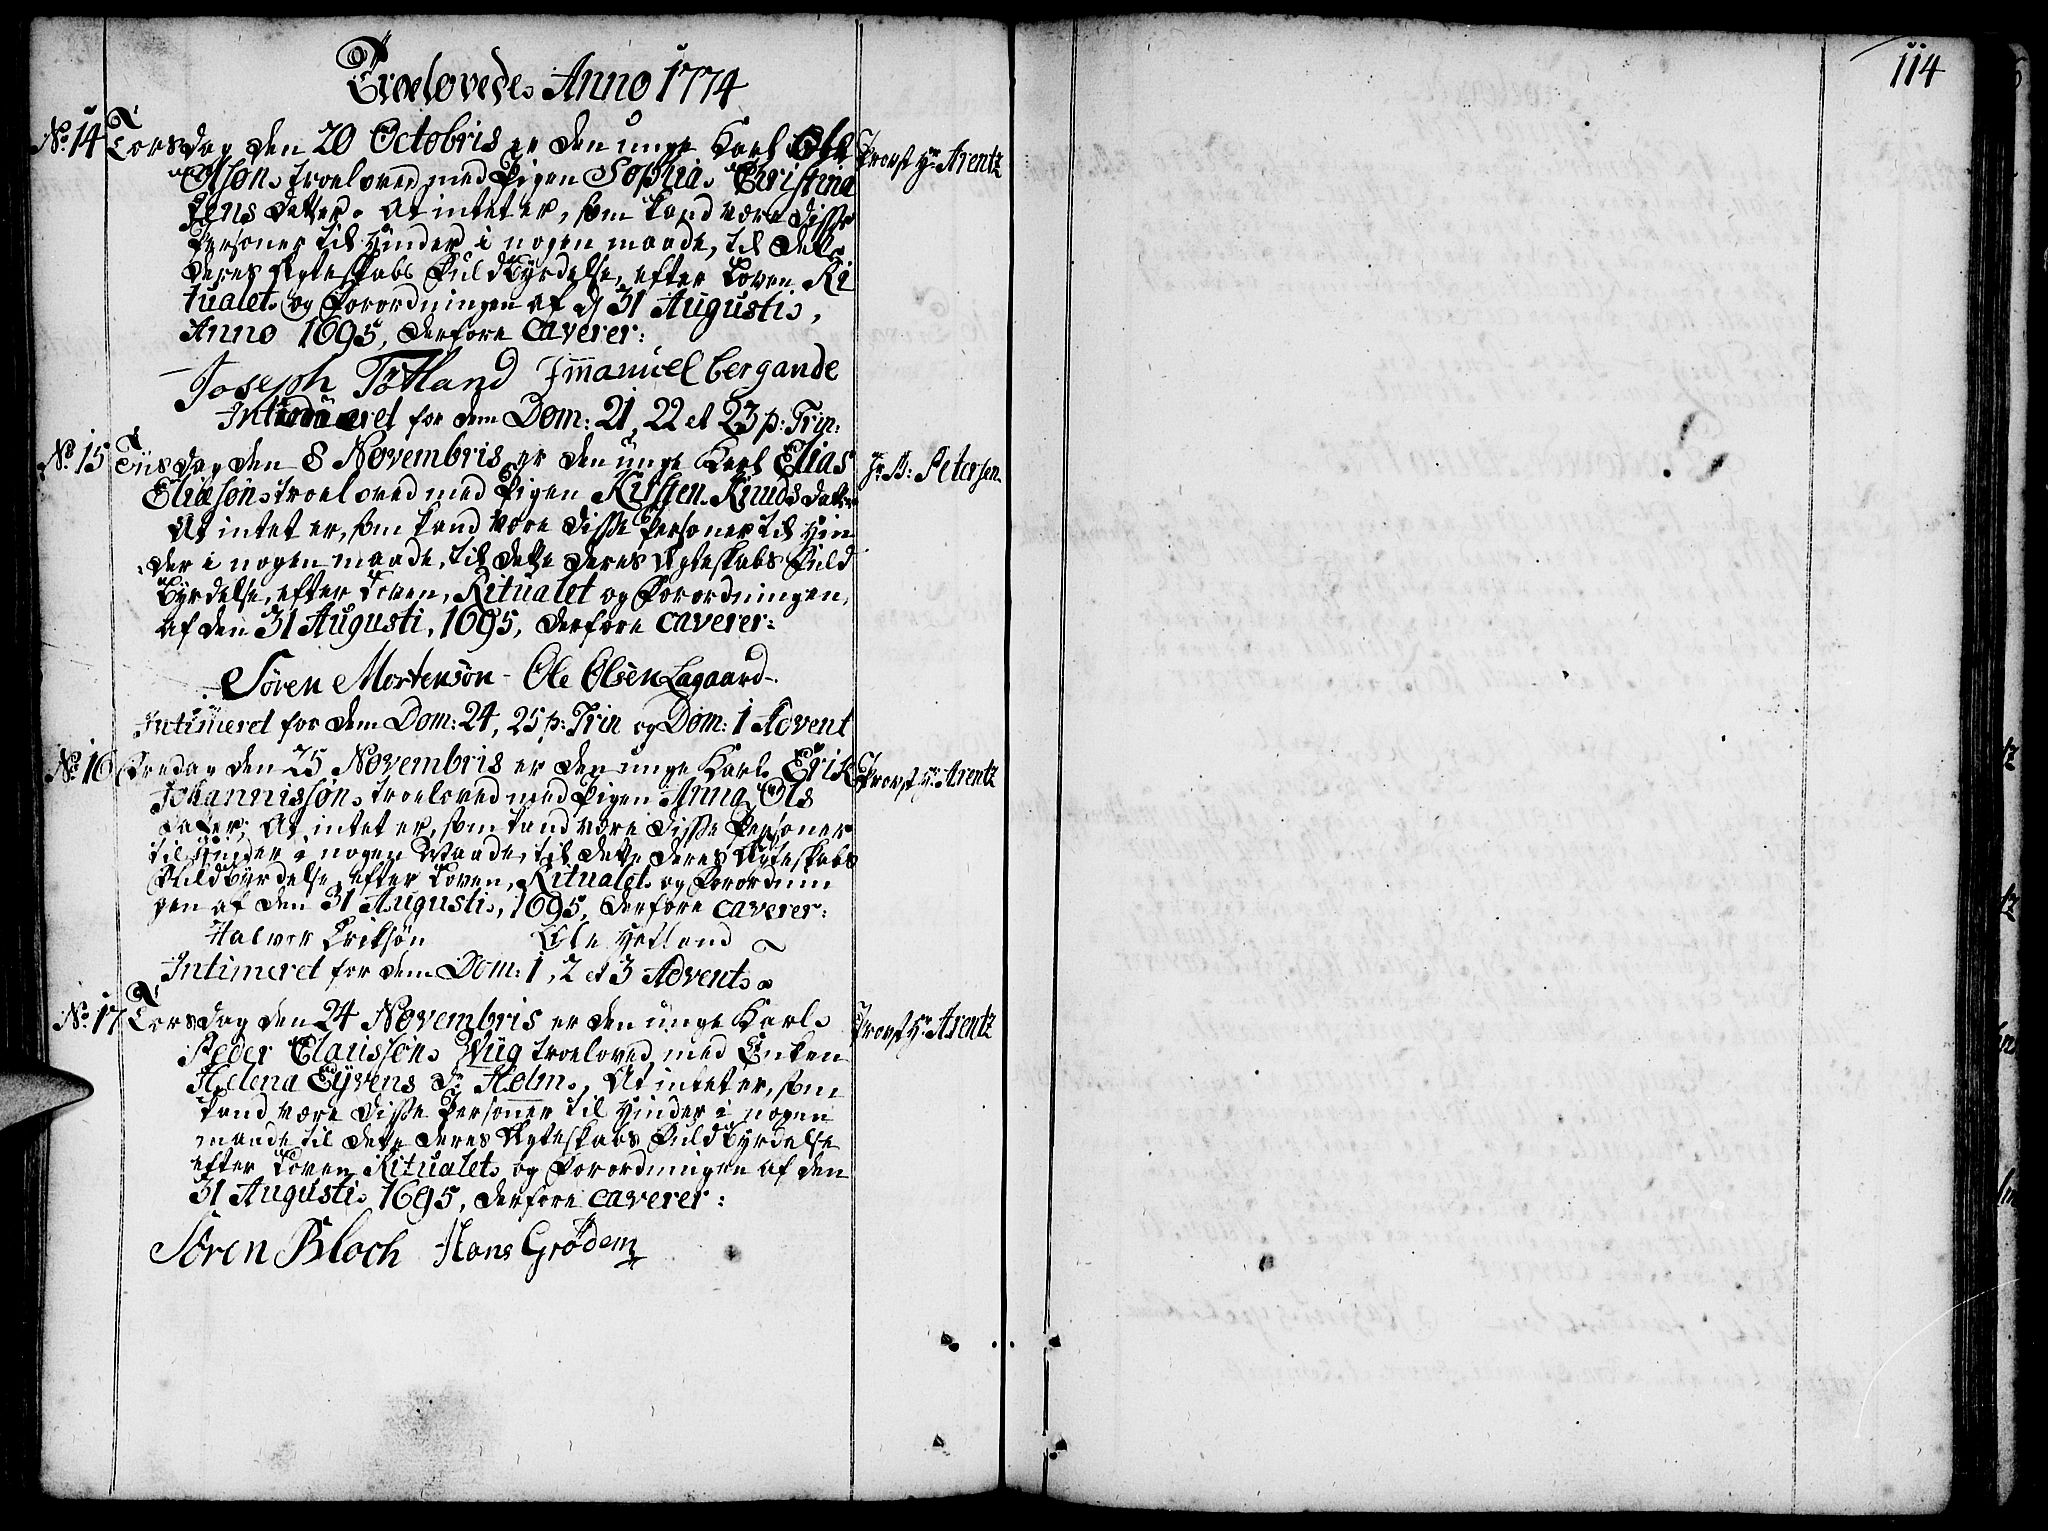 Troelovede Anno 1774
114
No. 14 Torsdag den 20 Octobris er den unge Karl Ole
Provst Hr. Arentz
Olsøn troeloved med Pigen Sophia Christina
Jens Datter. At intet er, som kand være disse
Personer til Hinder i nogen maade, til dette
deres Ægteskabs Fuldbyrdelse, efter Loven, Ri
tualet og Forordningen af d 31 Augusti,
Anno 1695, derfore caverer:
Joseph Tötland Immanuel bergande
Intimeret for dem Dom: 21, 22 et 23 p: Trin:
No. 15 Tiisdag den 8 Novembris er den unge Karl Elias
Hr. B: Petersen
Eliæsøn troeloved med Pigen Kirsten Knuds datter
At intet er, som kand være disse Personer til Hin
der i nogen maade, til dette deres Ægteskabs Fuld
byrdelse, efter Loven, Ritualet og Forordningen,
af den 31 Augusti, 1695, derfore caverer:
Søren Mortensøn - Ole Olsen Lagaard
Intimeret for dem Dom: 24, 25 p: Trin og Dom: 1 Advent
No. 16 Fredag den 25 Novembris er den unge Karl Erik
Provst Hr. Arentz
Johannissøn troeloved med Pigen Anna Ols
datter, At intet er, som kand være disse Personer
til Hinder i nogen Maade, til dette deres Ægteskabs
Fuldbyrdelse efter Loven, Ritualet og Forordnin
gen af den 31 Augusti, 1695, derfore caverer:
Halvor Eriksøn Ole Hetland
Intimeret for dem Dom: 1, 2 et 3 Advent
No. 17 Torsdag den 24 Novembris er den unge Karl
Provst Hr. Arentz
Peder Claussøn Wiig troeloved med Enken
Helena Eyvens Sr. Helm, At intet er, som
kand være disse Personer til Hinder i nogen
maade til dette deres Ægteskabs Fuldbyrdelse
efter Loven Ritualet og Forordningen af den
31 Augusti 1695, derfore caverer:
Søren Bloch Hans Grødem